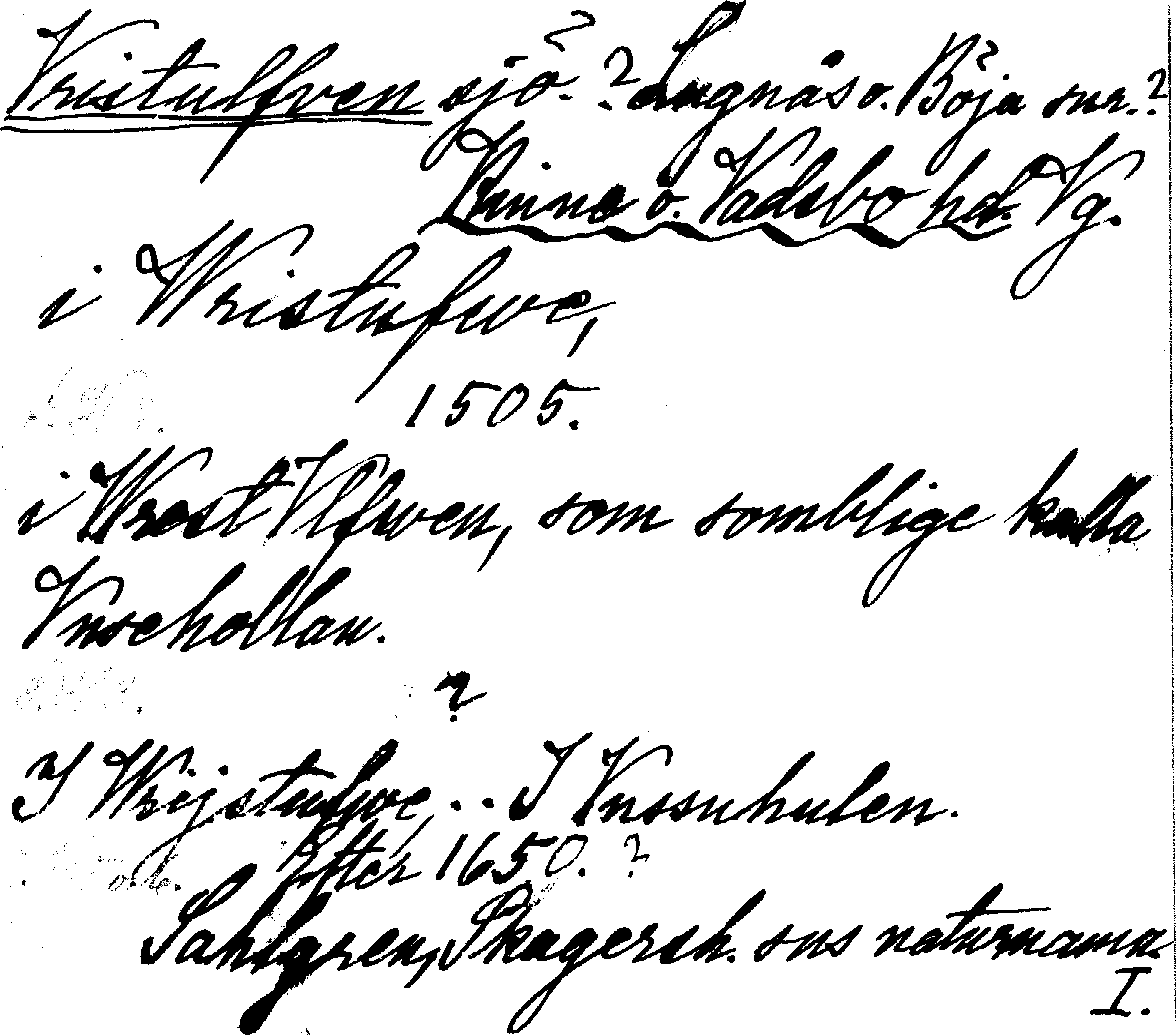 Vristulfven sjö. ? Lugnås o. Böja snr. ?
Kinne o. Vadsbo hd. Vg.
i Wristufwe,
1505.
i Wrest Vlfwen, som somblige kalla
Vnsehollan.
?
I Wrijstufwe, .. I Vnssuhulen.
Efter 1650. ?
Sahlgren, Skagersh. sns naturnamn.
I.